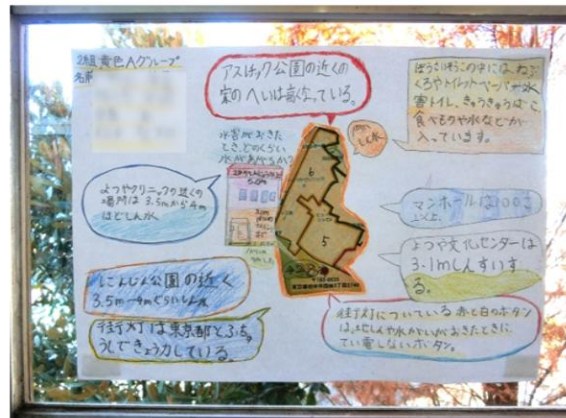 2組黄色Aグループ
名前
アスレチック公園の近くの
家のへいは高くなっている。
ぼうさいそうこの中には、ねぶ
くろやトイレットペーパーや水
害トイレ、きゅうきゅうばこ、
食べものや水などが
入っています。
水害がおきた
とき、どのくらい
水があがるか?
よつやクリニックの近くの
場所は3.5mから4m
ほどしん水
マンホールは100こ
いじょう
よつや文化センターは
3.1mしんすいす
る。
公園の近く
3.5m~4mぐらいしん水
街灯は東京都とふちゅ
うしできょう力している。
街灯についている赤と白のボタン
は、じしんや水がいがおきたときに
てい電しないボタン。
6
5